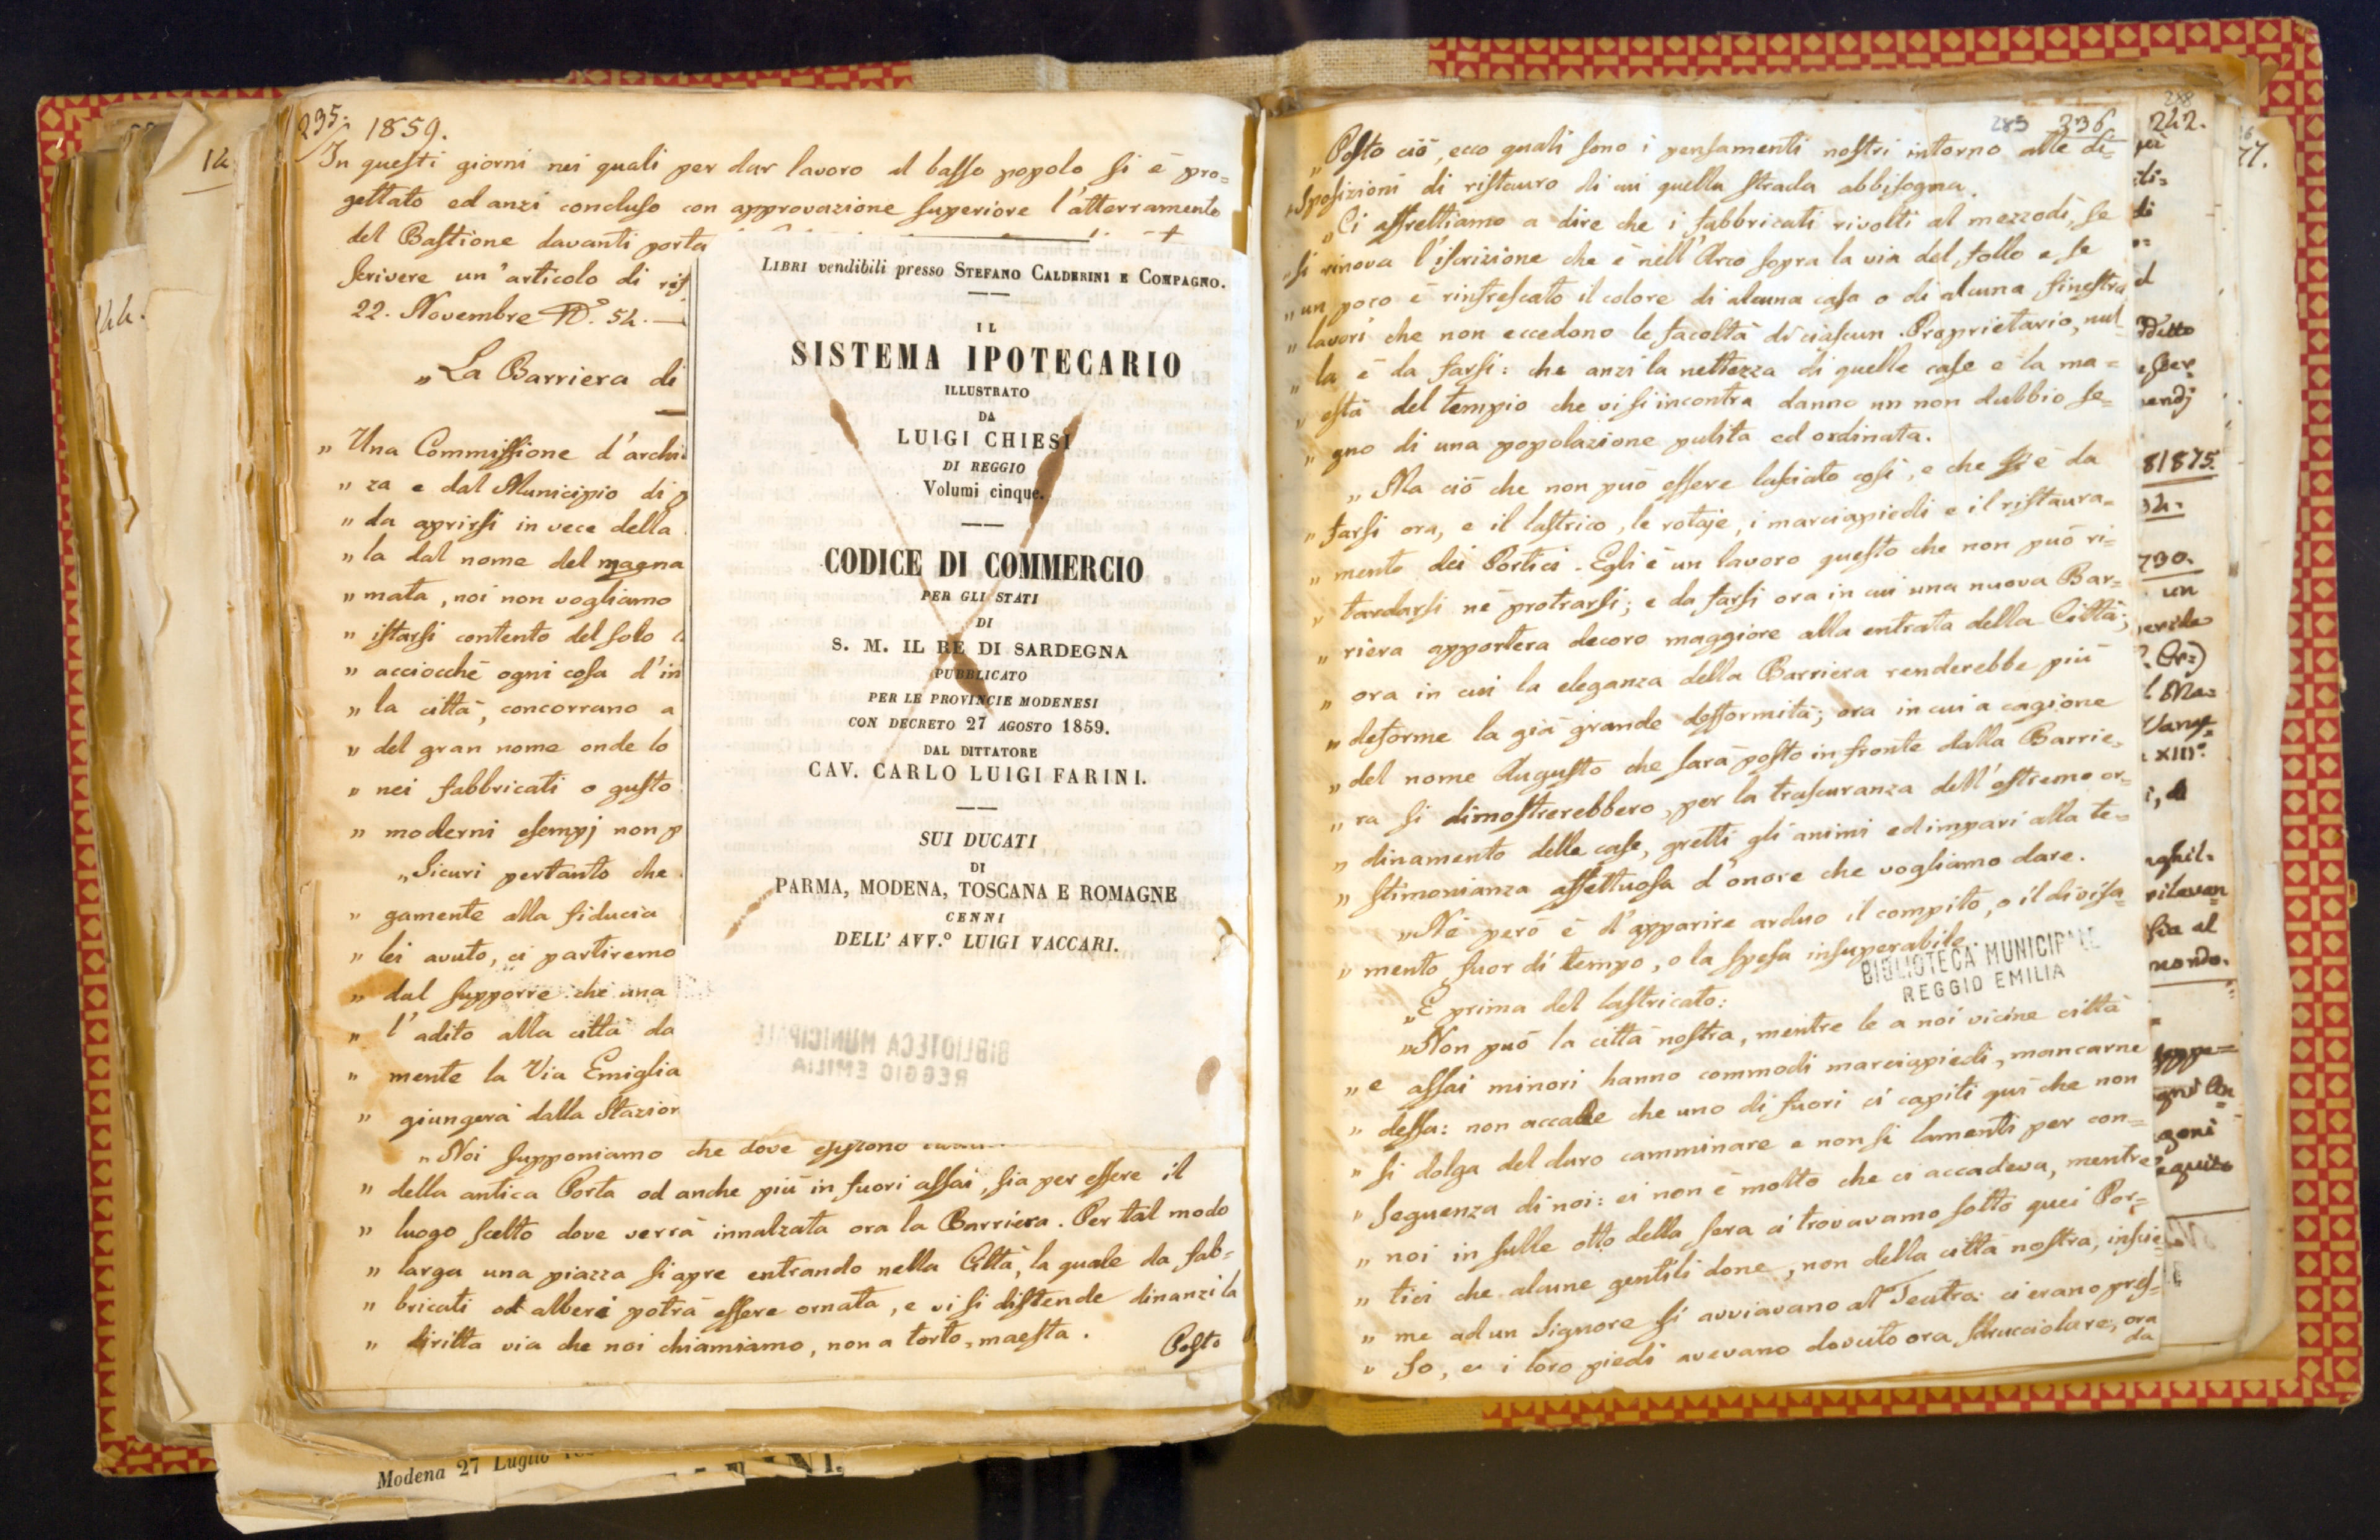 14
144.
235.
1859.
In questi giorni nei quali per dar lavoro al basso popolo si è pro=
gettato ed anzi concluso con approvazione superiore l'atterramento
del Bastione davanti porta
scrivere un'articolo di
22. Novembre N.º 54. —
„La Barriera di
„ Una Commissione d'archi
„ za e dal Municipio di
„ da aprirsi in vece della
„ la dal nome del magna
„ mata, noi non vogliamo
„ istarsi contento del solo
„ acciocchè ogni cosa d'in
„ la città, concorrano a
„ del gran nome onde lo
„ nei fabbricati o gusto
„ moderni esempj non p
„Sicuri pertanto che
„ gamente alla fiducia
„ lei avuto, ci partiremo
„ dal supporre che una
„ l'adito alla città da
„ mente la Via Emiglia
„ giungerà dalla Stazion
„Noi supponiamo che dove
„ della antica Porta od anche più in fuori assai, sia per essere il
„ luogo scelto dove verrà innalzata ora la Barriera. Per tal modo
„ larga una piazza si apre entrando nella Città, la quale da fab=
„ bricati od alberi potrà essere ornata, e vi si distende dinanzi la
„ diritta via che noi chiamiamo, non a torto, maesta.
Posto
LIBRI vendibili presso STEFANO CALDERINI E COMPAGNO.
IL
SISTEMA IPOTECARIO
ILLUSTRATO
DA
LUIGI CHIESI
DI REGGIO
Volumi cinque.
CODICE DI COMMERCIO
PER GLI STATI
DI
S. M. IL RE DI SARDEGNA
PUBBLICATO
PER LE PROVINCIE MODENESI
CON DECRETO 27 AGOSTO 1859.
DAL DITTATORE
CAV. CARLO LUIGI FARINI.
SUI DUCATI
DI
PARMA, MODENA, TOSCANA E ROMAGNE
CENNI
DELL' AVV.º LUIGI VACCARI.
BIBLIOTECA MUNICIPALE
REGGIO EMILIA
Modena 27 Luglio
285 236
„Posto ciò, ecco quali sono i pensamenti nostri intorno alle di=
„sposizioni di ristauro di cui quella strada abbisogna.
„Ci affrettiamo a dire che i fabbricati rivolti al mezzodì, se
„si rinova l'iscrizione che è nell'Arco sopra la via del follo e, se
„un poco è rinfrescato il colore di alcuna casa o di alcuna finestra
„lavori che non eccedono le facoltà di ciascun Proprietario, nul=
„ la è da farsi: che anzi la nettezza di quelle case e la ma=
„ està del tempio che vi si incontra danno un non dubbio se=
„ gno di una popolazione pulita ed ordinata.
„Ma ciò che non può essere lasciato così, e che si è da
„ farsi ora, e il lastrico, le rotaje, i marciapiedi e il ristaura=
„ mento dei Portici. Egli è un lavoro questo che non può ri=
„ tardarsi nè protrarsi; e da farsi ora in cui una nuova Bar=
„ riera apporterà decoro maggiore alla entrata della Città;
„ ora in cui la eleganza della Barriera renderebbe più
„ deforme la già grande defformità; ora in cui a cagione
„ del nome Augusto che sarà posto in fronte dalla Barrie=
„ ra si dimostrerebbero, per la trascuranza dell'estremo or=
„ dinamento delle case, gretti gli animi ed impari alla te=
„ stimonianza affettuosa d'onore che vogliamo dare.
„Nè però è d'apparire arduo il compito, o il divisa=
„ mento fuor di tempo, o la spesa insuperabile.
BIBLIOTECA MUNICIPALE
REGGIO EMILIA
„E prima del lastricato:
„Non può la città nostra, mentre le a noi vicine città
„ e assai minori hanno commodi marciapiedi, mancarne
„ dessa: non accade che uno di fuori ci capiti quì che non
„ si dolga del duro camminare e non si lamenti per con=
„ seguenza di noi: ei non è molto che ci accadeva, mentre
„ noi in sulle otto della sera ci trovavamo sotto quei Por=
„ tici che alcune gentili done, non della città nostra, insie=
„ me ad un Signore si avviavano al Teatro: ci erano pres=
„ so, e i loro piedi avevano dovuto ora sdrucciolare, ora
da
242.
81875.
730.
un
XIII.º
77.